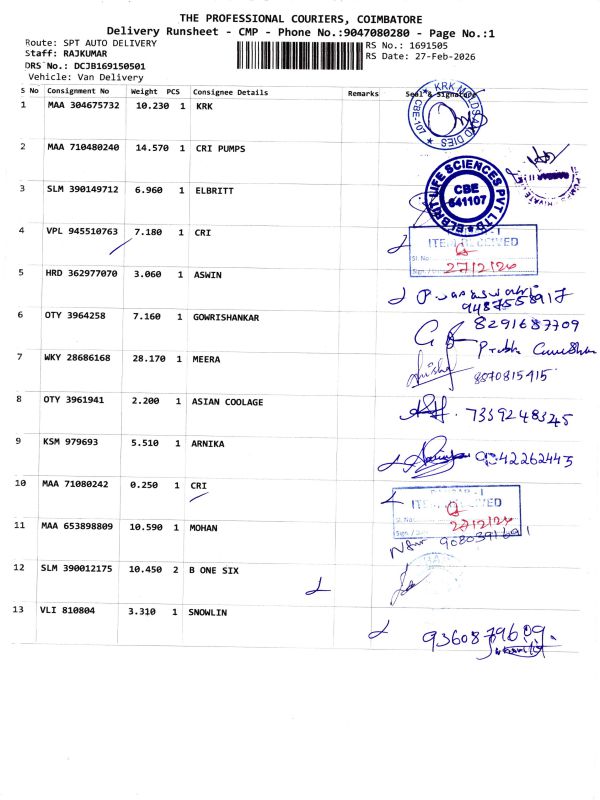 THE PROFESSIONAL COURIERS, COIMBATORE
Delivery Runsheet - CMP - Phone No.:9047080280 - Page No.:1
Route: SPT AUTO DELIVERY
RS No.: 1691505
Staff: RAJKUMAR
RS Date: 27-Feb-2026
DRS No.: DCJB169150501
Vehicle: Van Delivery
S No Consignment No Weight PCS Consignee Details Remarks Seal & Signature
1 MAA 304675732 10.230 1 KRK
KRK MOLDS AND DIES
CBE-107
2 MAA 710480240 14.570 1 CRI PUMPS
3 SLM 390149712 6.960 1 ELBRITT
ELBRIT LIFE SCIENCES PVT LTD
CBE
641107
4 VPL 945510763 7.180 1 CRI
ITEM RECEIVED
Sl. No:
27/2/26
5 HRD 362977070 3.060 1 ASWIN
6 OTY 3964258 7.160 1 GOWRISHANKAR
8291687709
7 WKY 28686168 28.170 1 MEERA
8 OTY 3961941 2.200 1 ASIAN COOLAGE
7339248345
9 KSM 979693 5.510 1 ARNIKA
9042262445
10 MAA 71080242 0.250 1 CRI
27/2/26
11 MAA 653898809 10.590 1 MOHAN
12 SLM 390012175 10.450 2 B ONE SIX
13 VLI 810804 3.310 1 SNOWLIN
9360879609.